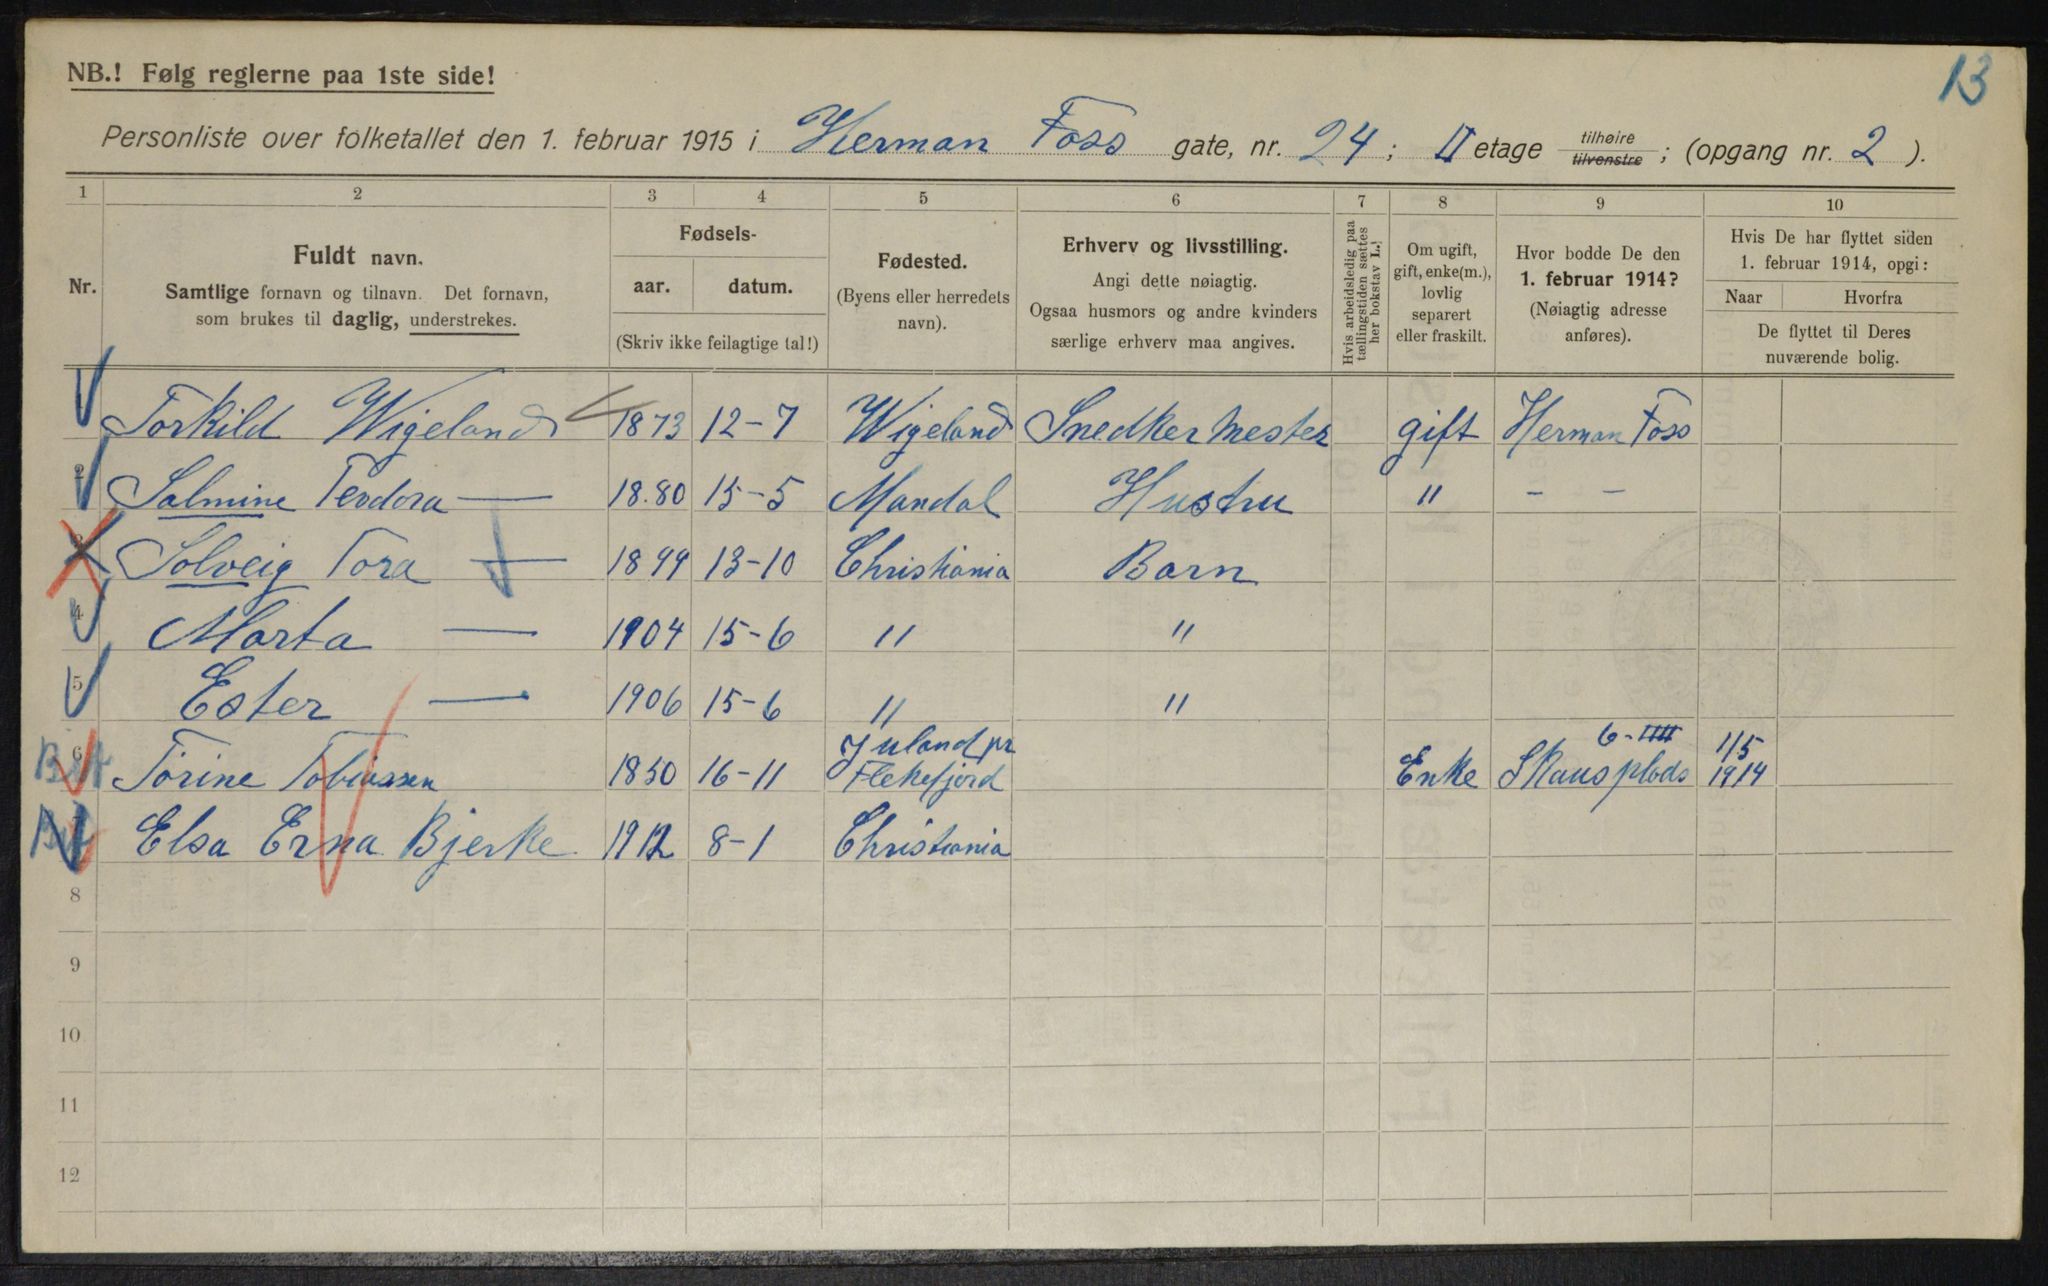 13
NB.! Følg reglerne paa 1ste side!
Personliste over folketallet den 1. februar 1915 i Herman Foss gate, nr. 24; II etage tilhøire tilvenstre; (opgang nr. 2 ).
1 2 3 4 5 6 7 8 9 10
Nr.
Fuldt navn.
Samtlige fornavn og tilnavn. Det fornavn,
som brukes til daglig, understrekes.
Fødsels-
aar. datum.
(Skriv ikke feilagtige tal!)
Fødested.
(Byens eller herredets
navn).
Erhverv og livsstilling.
Angi dette nøiagtig.
Ogsaa husmors og andre kvinders
særlige erhverv maa angives.
Hvis arbeidsledig paa
tællingstiden sættes
her bokstav L.!
Om ugift,
gift, enke(m.),
lovlig
separert
eller fraskilt.
Hvor bodde De den
1. februar 1914?
(Nøiagtig adresse
anføres).
Hvis De har flyttet siden
1. februar 1914, opgi:
Naar Hvorfra
De flyttet til Deres
nuværende bolig.
Torkild Wigeland 1873 12-7 Wigeland Snedkermester gift Herman Foss
2 Salmine Teodora — 1880 15-5 Mandal Hustru " - -
3 Solveig Tora — 1899 13-10 Christiania Barn
4 Marta — 1904 15-6 " "
5 Ester — 1906 15-6 " "
6 Torine Tobiassen 1850 16-11 Juland pr Flekefjord Enke Skausplads 6 1/5 1914
7 Elsa Erna Bjerke 1912 8-1 Christiania
8
9
10
11
12